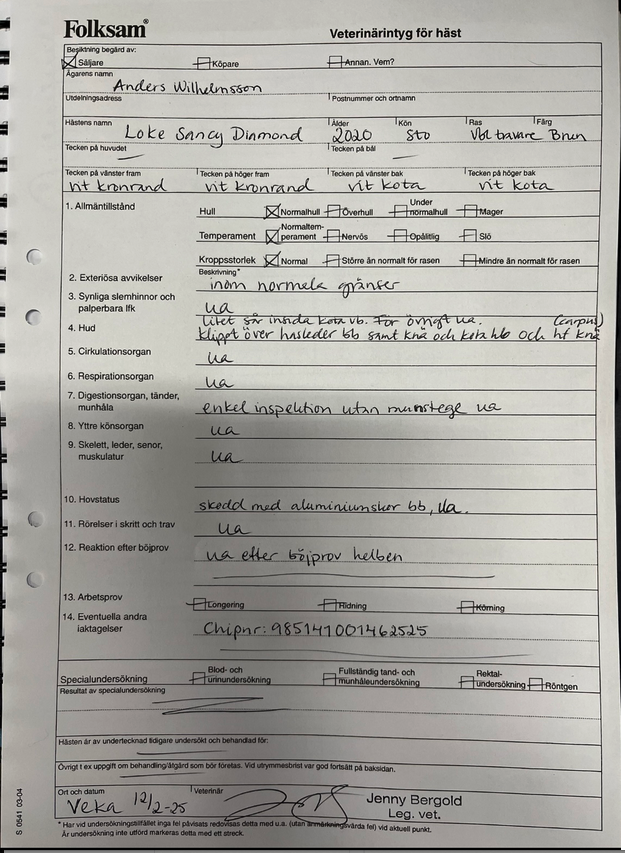 Folksam®
Veterinärintyg för häst
Besiktning begärd av:
Säljare Köpare Annan. Vem?
Ägarens namn
Anders Wilhelmsson
Utdelningsadress Postnummer och ortnamn
Hästens namn Ålder Kön Ras Färg
Loke Sancy Diamond 2020 Sto Vbl travare Brun
Tecken på huvudet Tecken på bål
Tecken på vänster fram Tecken på höger fram Tecken på vänster bak Tecken på höger bak
vit kronrand vit kronrand vit kota vit kota
1. Allmäntillstånd Hull Normalhull Överhull Under normalhull Mager
Temperament Normaltemperament Nervös Opålitlig Slö
Kroppsstorlek Normal Större än normalt för rasen Mindre än normalt för rasen
Beskrivning*
2. Exteriösa avvikelser inom normala gränser
3. Synliga slemhinnor och
palperbara lfk ua
litet sår insida kota vb. För övrigt ua. (carpus)
4. Hud klippt över hasleder bb samt knä och kota hb och hf knä
5. Cirkulationsorgan ua
6. Respirationsorgan ua
7. Digestionsorgan, tänder,
munhåla enkel inspektion utan munstege ua
8. Yttre könsorgan ua
9. Skelett, leder, senor,
muskulatur ua
10. Hovstatus skodd med aluminiumskor bb, ua.
11. Rörelser i skritt och trav ua
12. Reaktion efter böjprov ua efter böjprov helben
13. Arbetsprov Longering Ridning Körning
14. Eventuella andra
iaktagelser Chipnr: 985141001462525
Specialundersökning Blod- och urinundersökning Fullständig tand- och munhåleundersökning Rektalundersökning Röntgen
Resultat av specialundersökning
Hästen är av undertecknad tidigare undersökt och behandlad för:
Övrigt t ex uppgift om behandling/åtgärd som bör företas. Vid utrymmesbrist var god fortsätt på baksidan.
Ort och datum Veterinär
Veka 12/2-25 Jenny Bergold
Leg. vet.
* Har vid undersökningstillfället inga fel påvisats redovisas detta med u.a. (utan anmärkningsvärda fel) vid aktuell punkt.
Är undersökning inte utförd markeras detta med ett streck.
S 0541 03-04